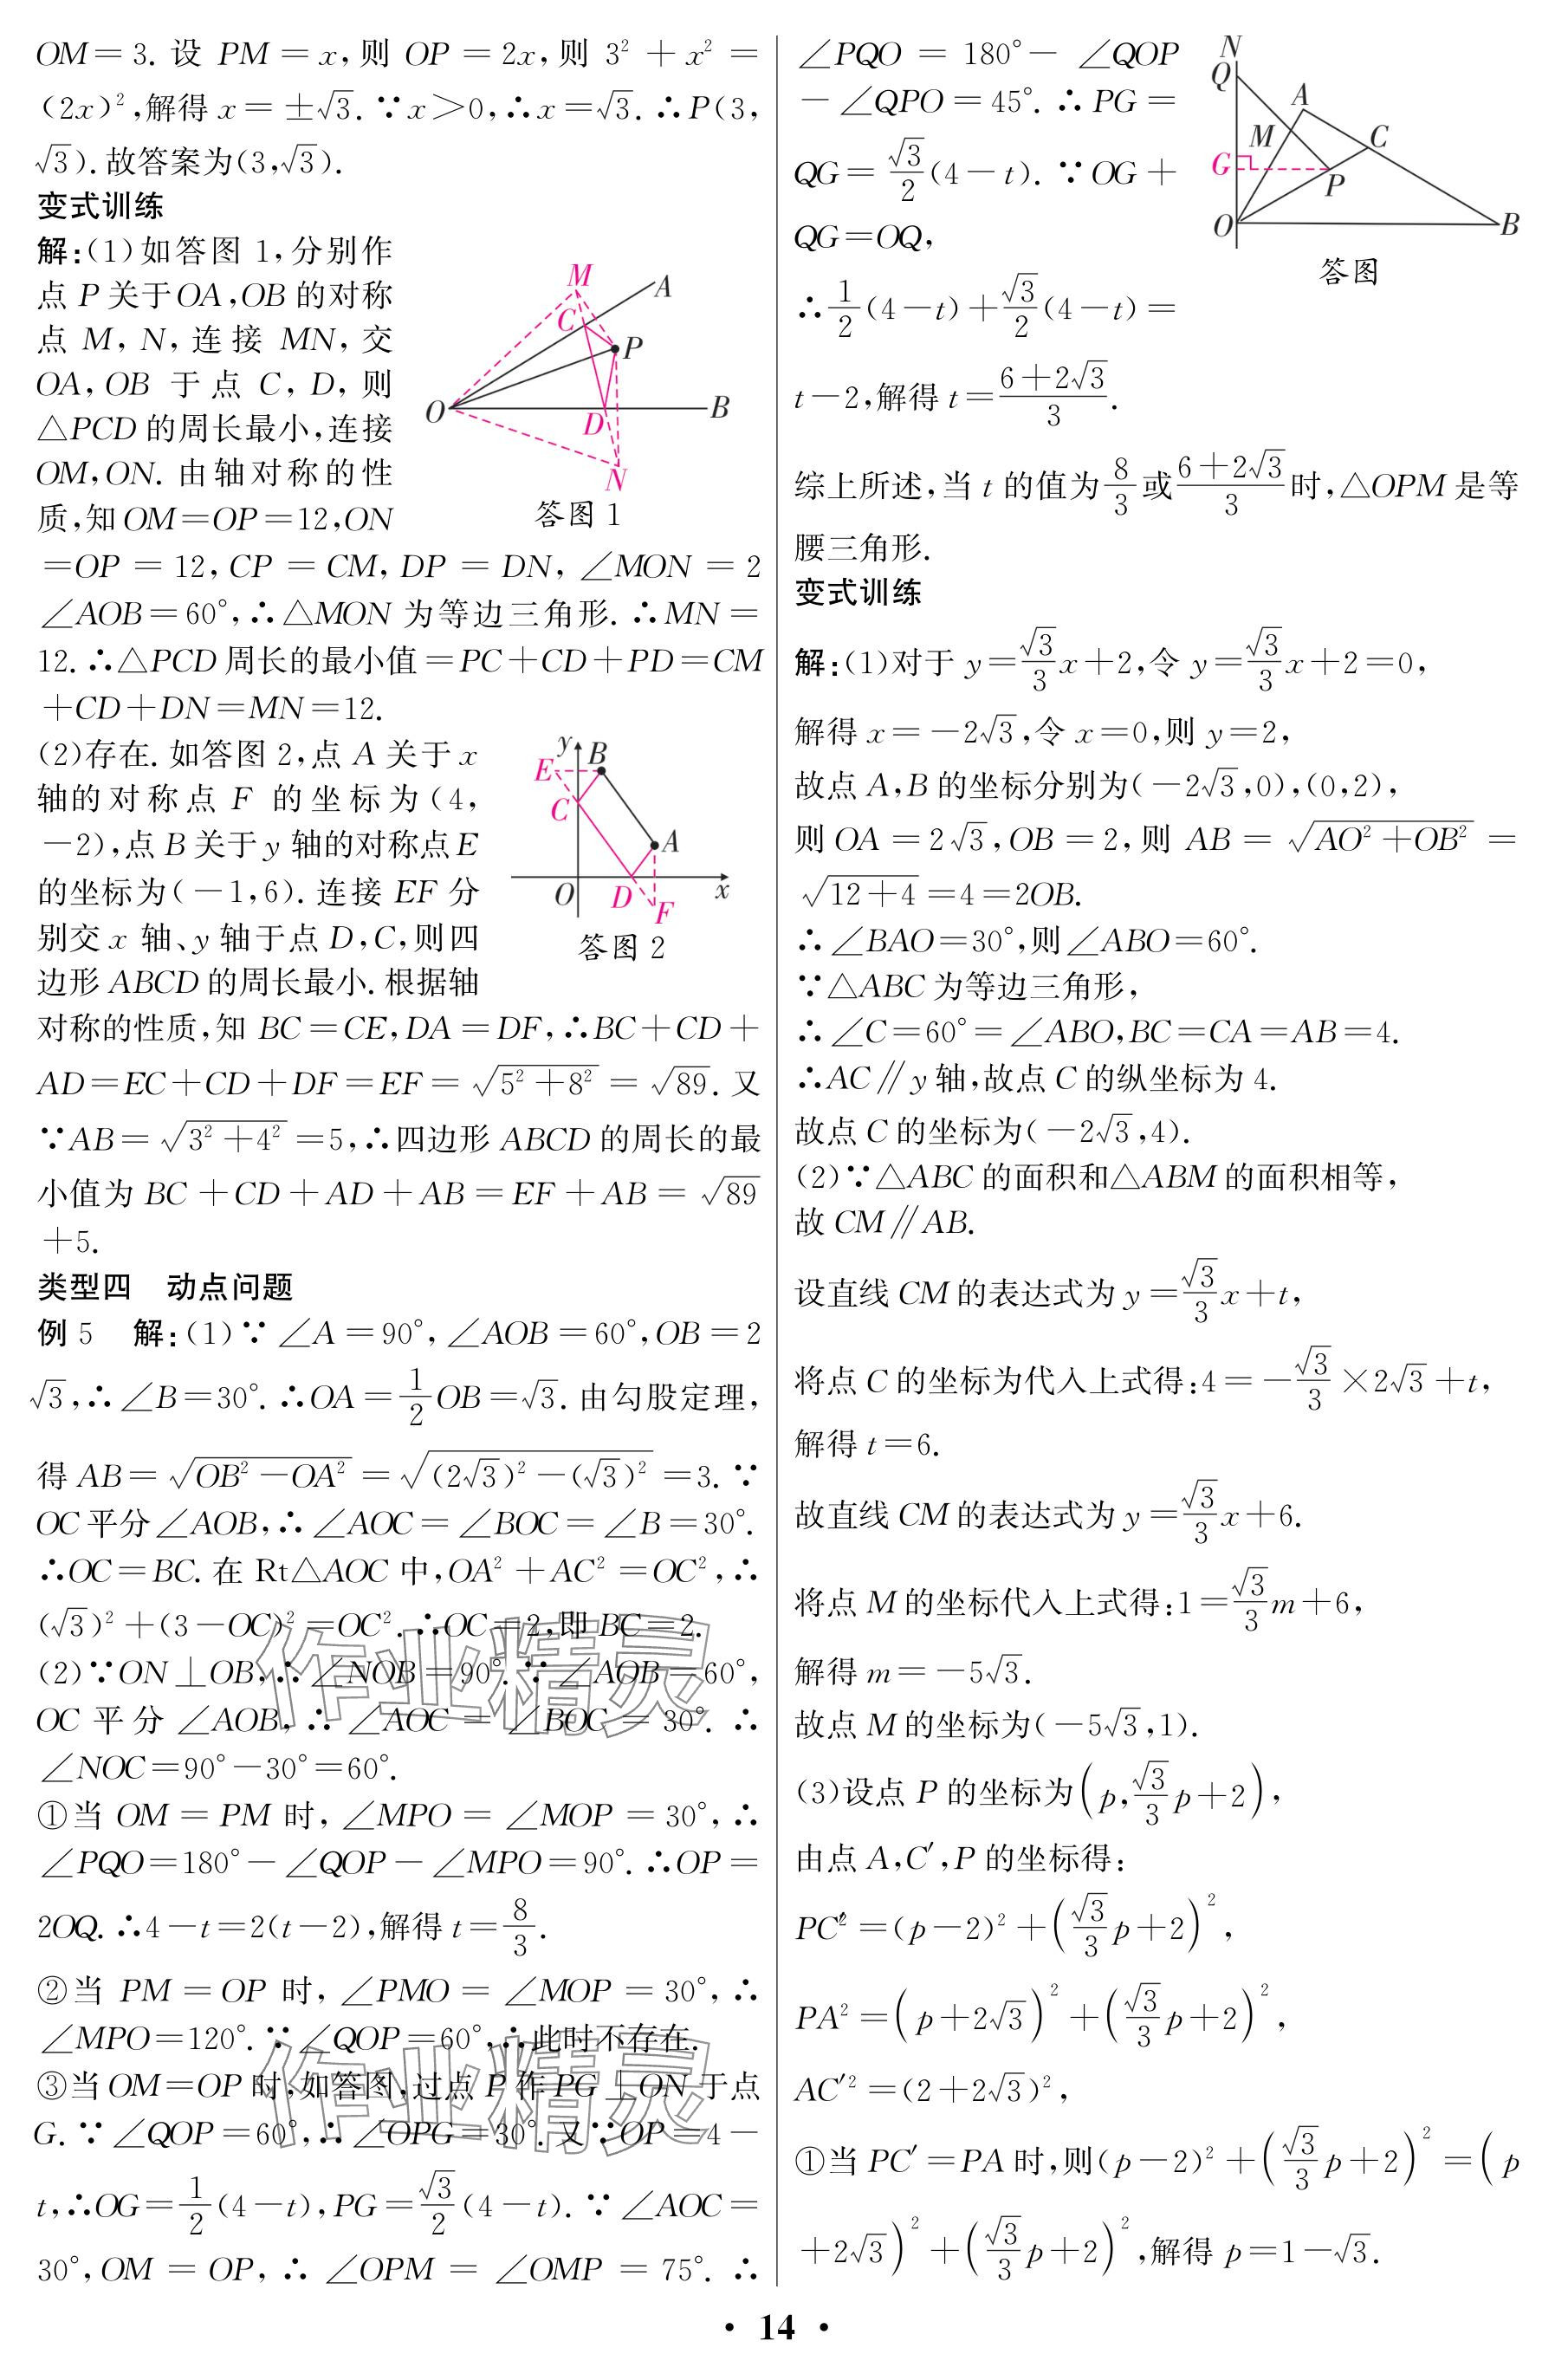 OM=3. 设 PM=x,则 OP=2x,则 3²+x²=
(2x)²,解得 x=±√3. ∵x>0,∴x=√3. ∴P(3,
√3).故答案为(3,√3).
变式训练
解:(1)如答图 1,分别作
点 P 关于OA,OB 的对称
点 M, N, 连接 MN, 交
OA, OB 于点 C, D, 则
△PCD 的周长最小,连接
OM,ON. 由轴对称的性
质,知OM=OP=12,ON
=OP=12,CP=CM,DP=DN,∠MON=2
∠AOB=60°,∴△MON 为等边三角形. ∴MN=
12. ∴△PCD 周长的最小值=PC+CD+PD=CM
+CD+DN=MN=12.
M
A
C
P
O
D
B
N
答图 1
(2)存在. 如答图 2,点 A 关于 x
轴的对称点 F 的坐标为(4,
-2),点 B 关于 y 轴的对称点E
的坐标为(-1,6). 连接 EF 分
别交 x 轴、y 轴于点 D,C,则四
边形 ABCD 的周长最小. 根据轴
对称的性质,知 BC=CE,DA=DF,∴BC+CD+
AD=EC+CD+DF=EF=√(5²+8²)=√89. 又
∵AB=√(3²+4²)=5,∴四边形 ABCD 的周长的最
小值为 BC+CD+AD+AB=EF+AB=√89
+5.
y
B
E
C
A
O
D
x
F
答图 2
类型四 动点问题
例 5 解:(1)∵∠A=90°,∠AOB=60°,OB=2
√3,∴∠B=30°. ∴OA=1/2 OB=√3. 由勾股定理,
得 AB=√(OB²-OA²)=√((2√3)²-(√3)²)=3. ∵
OC 平分∠AOB,∴∠AOC=∠BOC=∠B=30°.
∴OC=BC. 在 Rt△AOC 中,OA²+AC²=OC²,∴
(√3)²+(3-OC)²=OC². ∴OC=2,即 BC=2.
(2)∵ON⊥OB,∴∠NOB=90°. ∵∠AOB=60°,
OC 平分∠AOB,∴∠AOC=∠BOC=30°. ∴
∠NOC=90°-30°=60°.
①当 OM=PM 时,∠MPO=∠MOP=30°,∴
∠PQO=180°-∠QOP-∠MPO=90°. ∴OP=
2OQ. ∴4-t=2(t-2),解得 t=8/3.
②当 PM=OP 时,∠PMO=∠MOP=30°,∴
∠MPO=120°. ∵∠QOP=60°,∴此时不存在.
③当OM=OP 时,如答图,过点 P 作PG⊥ON 于点
G. ∵∠QOP=60°,∴∠OPG=30°. 又∵OP=4-
t,∴OG=1/2(4-t),PG=√3/2(4-t). ∵∠AOC=
30°,OM=OP,∴∠OPM=∠OMP=75°. ∴
作业精灵
作业精灵
∠PQO=180°-∠QOP
-∠QPO=45°. ∴PG=
QG=√3/2(4-t). ∵OG+
QG=OQ,
∴1/2(4-t)+√3/2(4-t)=
t-2,解得 t=(6+2√3)/3.
N
Q
A
M
C
G
P
O
B
答图
综上所述,当 t 的值为8/3或(6+2√3)/3时,△OPM 是等
腰三角形.
变式训练
解:(1)对于 y=√3/3 x+2,令 y=√3/3 x+2=0,
解得 x=-2√3,令 x=0,则 y=2,
故点 A,B 的坐标分别为(-2√3,0),(0,2),
则 OA=2√3,OB=2,则 AB=√(AO²+OB²)=
√(12+4)=4=2OB.
∴∠BAO=30°,则∠ABO=60°.
∵△ABC 为等边三角形,
∴∠C=60°=∠ABO,BC=CA=AB=4.
∴AC∥y 轴,故点 C 的纵坐标为 4.
故点 C 的坐标为(-2√3,4).
(2)∵△ABC 的面积和△ABM 的面积相等,
故 CM∥AB.
设直线 CM 的表达式为 y=√3/3 x+t,
将点 C 的坐标为代入上式得:4=-√3/3×2√3+t,
解得 t=6.
故直线 CM 的表达式为 y=√3/3 x+6.
将点 M 的坐标代入上式得:1=√3/3 m+6,
解得 m=-5√3.
故点 M 的坐标为(-5√3,1).
(3)设点 P 的坐标为(p,√3/3 p+2),
由点 A,C′,P 的坐标得:
PC′²=(p-2)²+(√3/3 p+2)²,
PA²=(p+2√3)²+(√3/3 p+2)²,
AC′²=(2+2√3)²,
①当 PC′=PA 时,则(p-2)²+(√3/3 p+2)²=(p
+2√3)²+(√3/3 p+2)²,解得 p=1-√3.
• 14 •